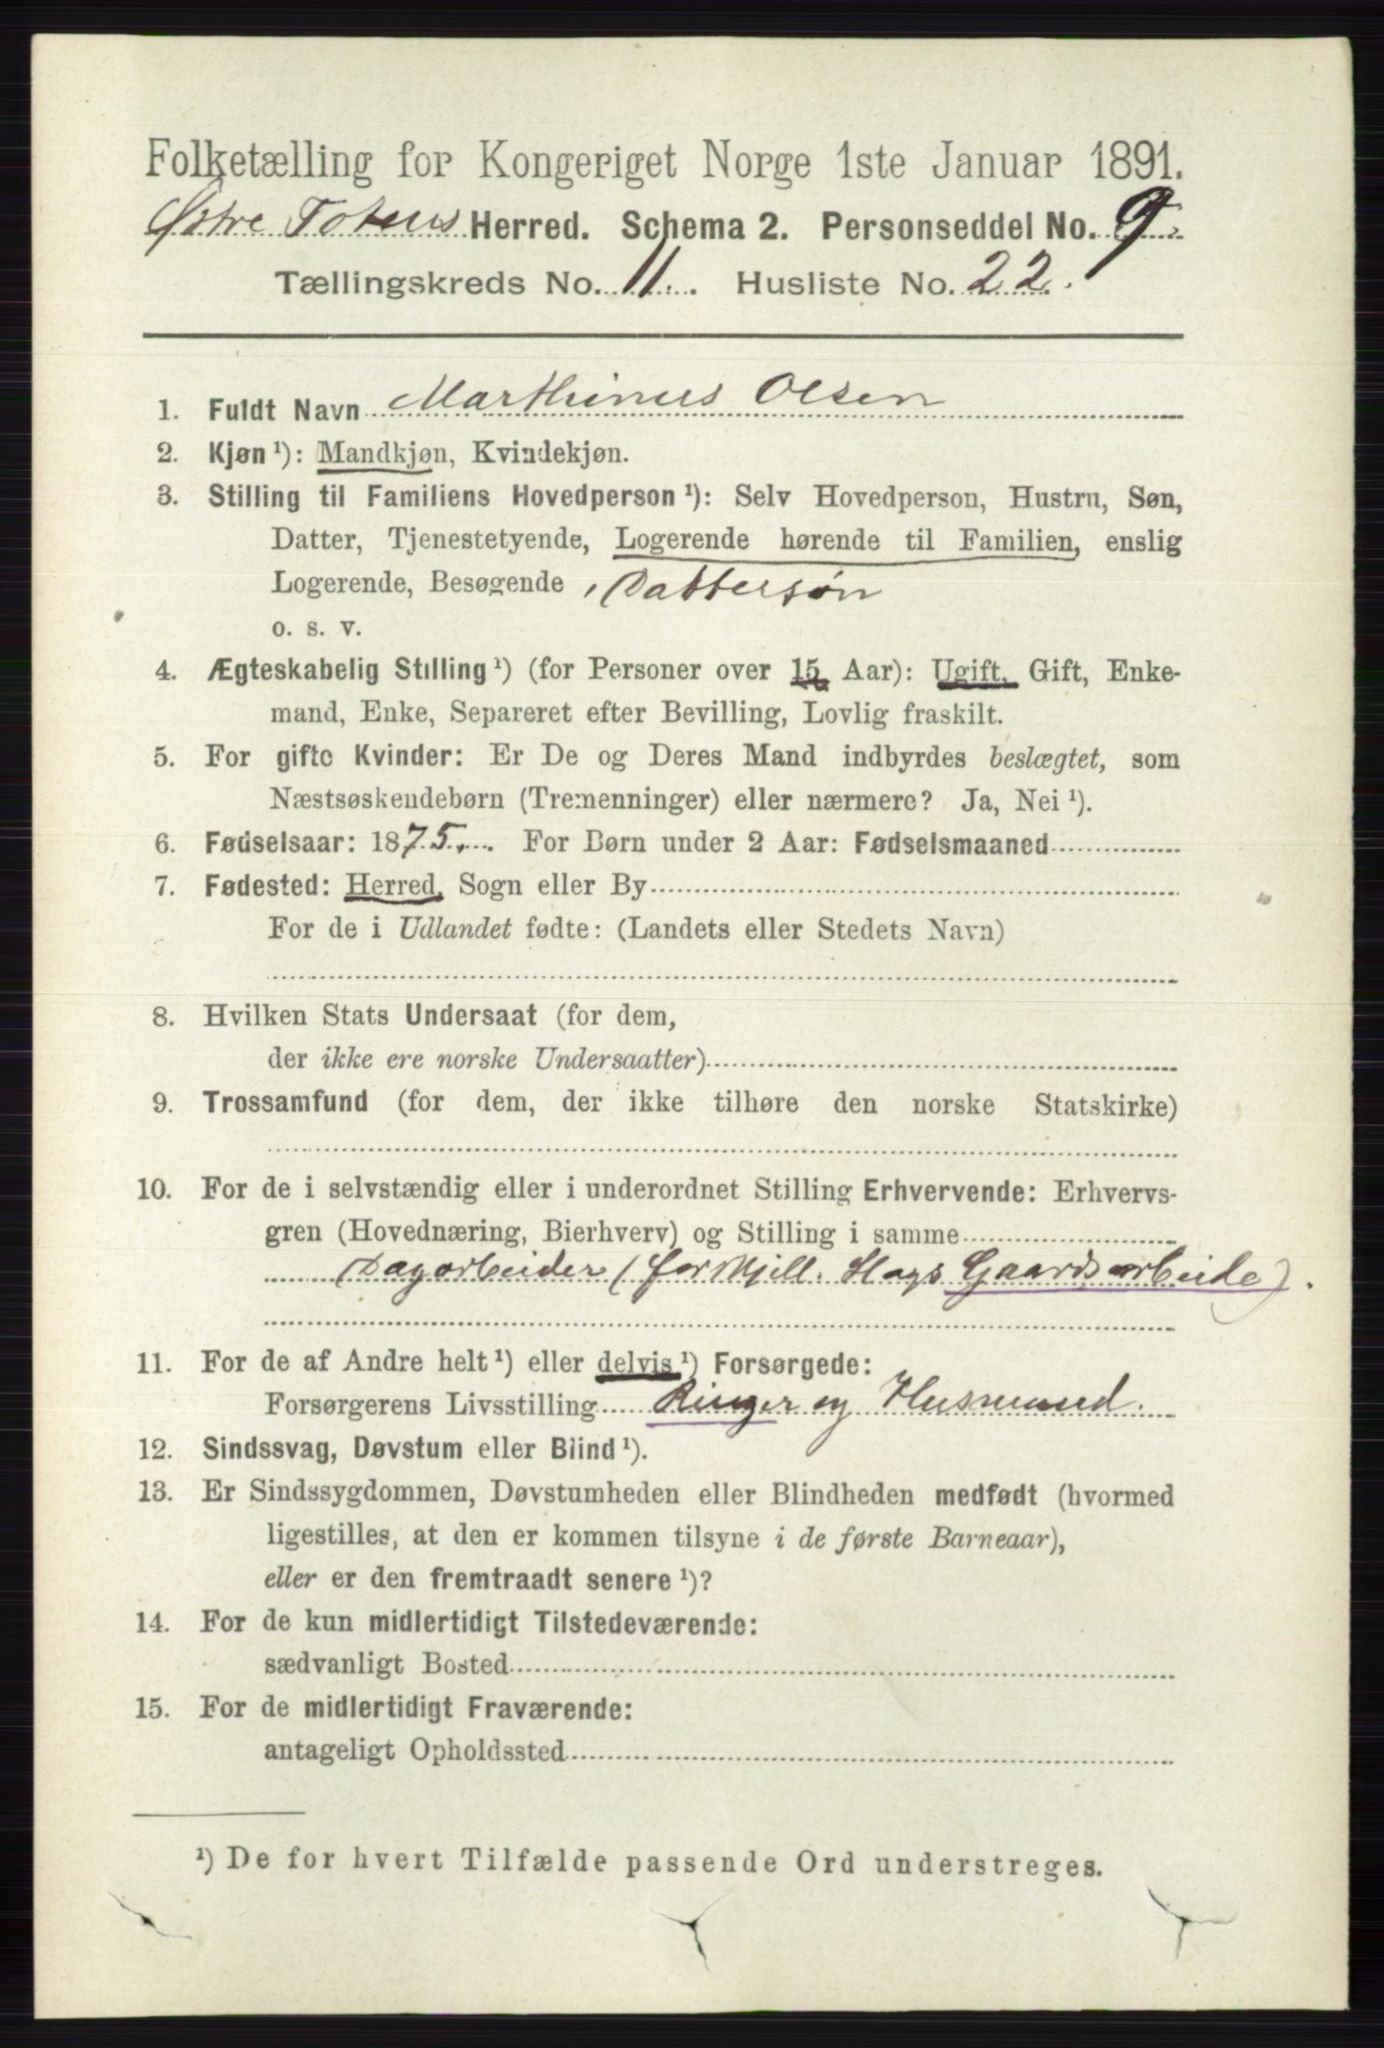 Folketælling for Kongeriget Norge 1ste Januar 1891.
Østre Totens Herred. Schema 2. Personseddel No. 9.
Tællingskreds No. 11. Husliste No. 22.
1. Fuldt Navn Marthinus Olsen
2. Kjøn ¹): Mandkjøn, Kvindekjøn.
3. Stilling til Familiens Hovedperson ¹): Selv Hovedperson, Hustru, Søn,
Datter, Tjenestetyende, Logerende hørende til Familien, enslig
Logerende, Besøgende, Dattersøn
o. s. v.
4. Ægteskabelig Stilling ¹) (for Personer over 15 Aar): Ugift, Gift, Enke-
mand, Enke, Separeret efter Bevilling, Lovlig fraskilt.
5. For gifte Kvinder: Er De og Deres Mand indbyrdes beslægtet, som
Næstsøskendebørn (Tremenninger) eller nærmere? Ja, Nei ¹).
6. Fødselsaar: 1875. For Børn under 2 Aar: Fødselsmaaned
7. Fødested: Herred, Sogn eller By
For de i Udlandet fødte: (Landets eller Stedets Navn)
8. Hvilken Stats Undersaat (for dem,
der ikke ere norske Undersaatter)
9. Trossamfund (for dem, der ikke tilhøre den norske Statskirke)
10. For de i selvstændig eller i underordnet Stilling Erhvervende: Erhvervs-
gren (Hovednæring, Bierhverv) og Stilling i samme
Dagarbeider (for Gaardsarbeide).
11. For de af Andre helt ¹) eller delvis ¹) Forsørgede:
Forsørgerens Livsstilling Ringer og Husmand.
12. Sindssvag, Døvstum eller Blind ¹).
13. Er Sindssygdommen, Døvstumheden eller Blindheden medfødt (hvormed
ligestilles, at den er kommen tilsyne i de første Barneaar),
eller er den fremtraadt senere ¹)?
14. For de kun midlertidigt Tilstedeværende:
sædvanligt Bosted
15. For de midlertidigt Fraværende:
antageligt Opholdssted
¹) De for hvert Tilfælde passende Ord understreges.